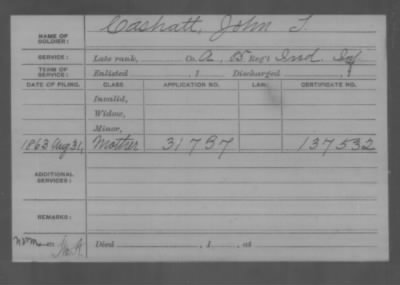 NAME OF SOLDIER: Cashatt, John T
SERVICE: Late rank, Co. A, 15 Reg't Ind Inf
TERM OF SERVICE: Enlisted , 1 Discharged , 1
DATE OF FILING. CLASS APPLICATION NO. LAW. CERTIFICATE NO.
Invalid,
Widow,
Minor,
1863 Aug 31, Mother 31757 137532
ADDITIONAL SERVICES:
REMARKS:
Died , 1 , at